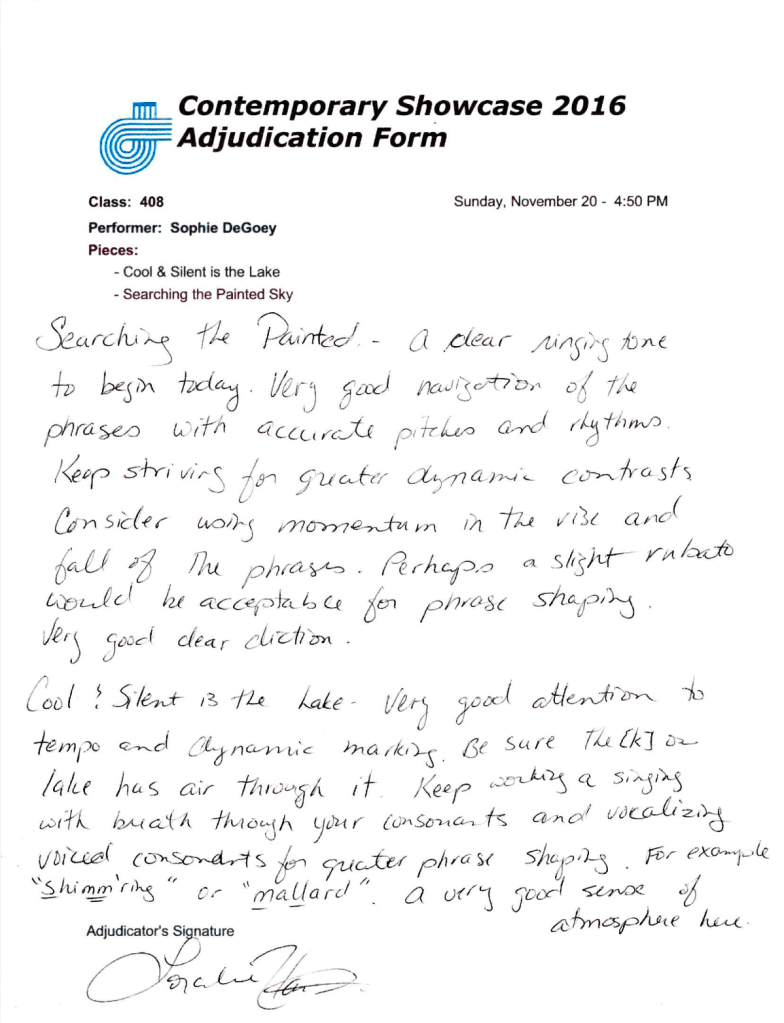 Contemporary Showcase 2016
Adjudication Form
Class: 408 Sunday, November 20 - 4:50 PM
Performer: Sophie DeGoey
Pieces:
- Cool & Silent is the Lake
- Searching the Painted Sky
Searching the Painted. - A clear ringing tone
to begin today. Very good navigation of the
phrases with accurate pitches and rhythms.
Keep striving for greater dynamic contrasts
Consider using momentum in the rise and
fall of the phrases. Perhaps a slight rubato
would be acceptable for phrase shaping.
Very good clear diction.
Cool & Silent is the Lake - Very good attention to
tempo and dynamic marking. Be sure the [k] on
lake has air through it. Keep working a singing
with breath through your consonants and vocalizing
voiced consonants for greater phrase shaping. For example
"shimm'ring" or "mallard". A very good sense of
atmosphere here.
Adjudicator's Signature